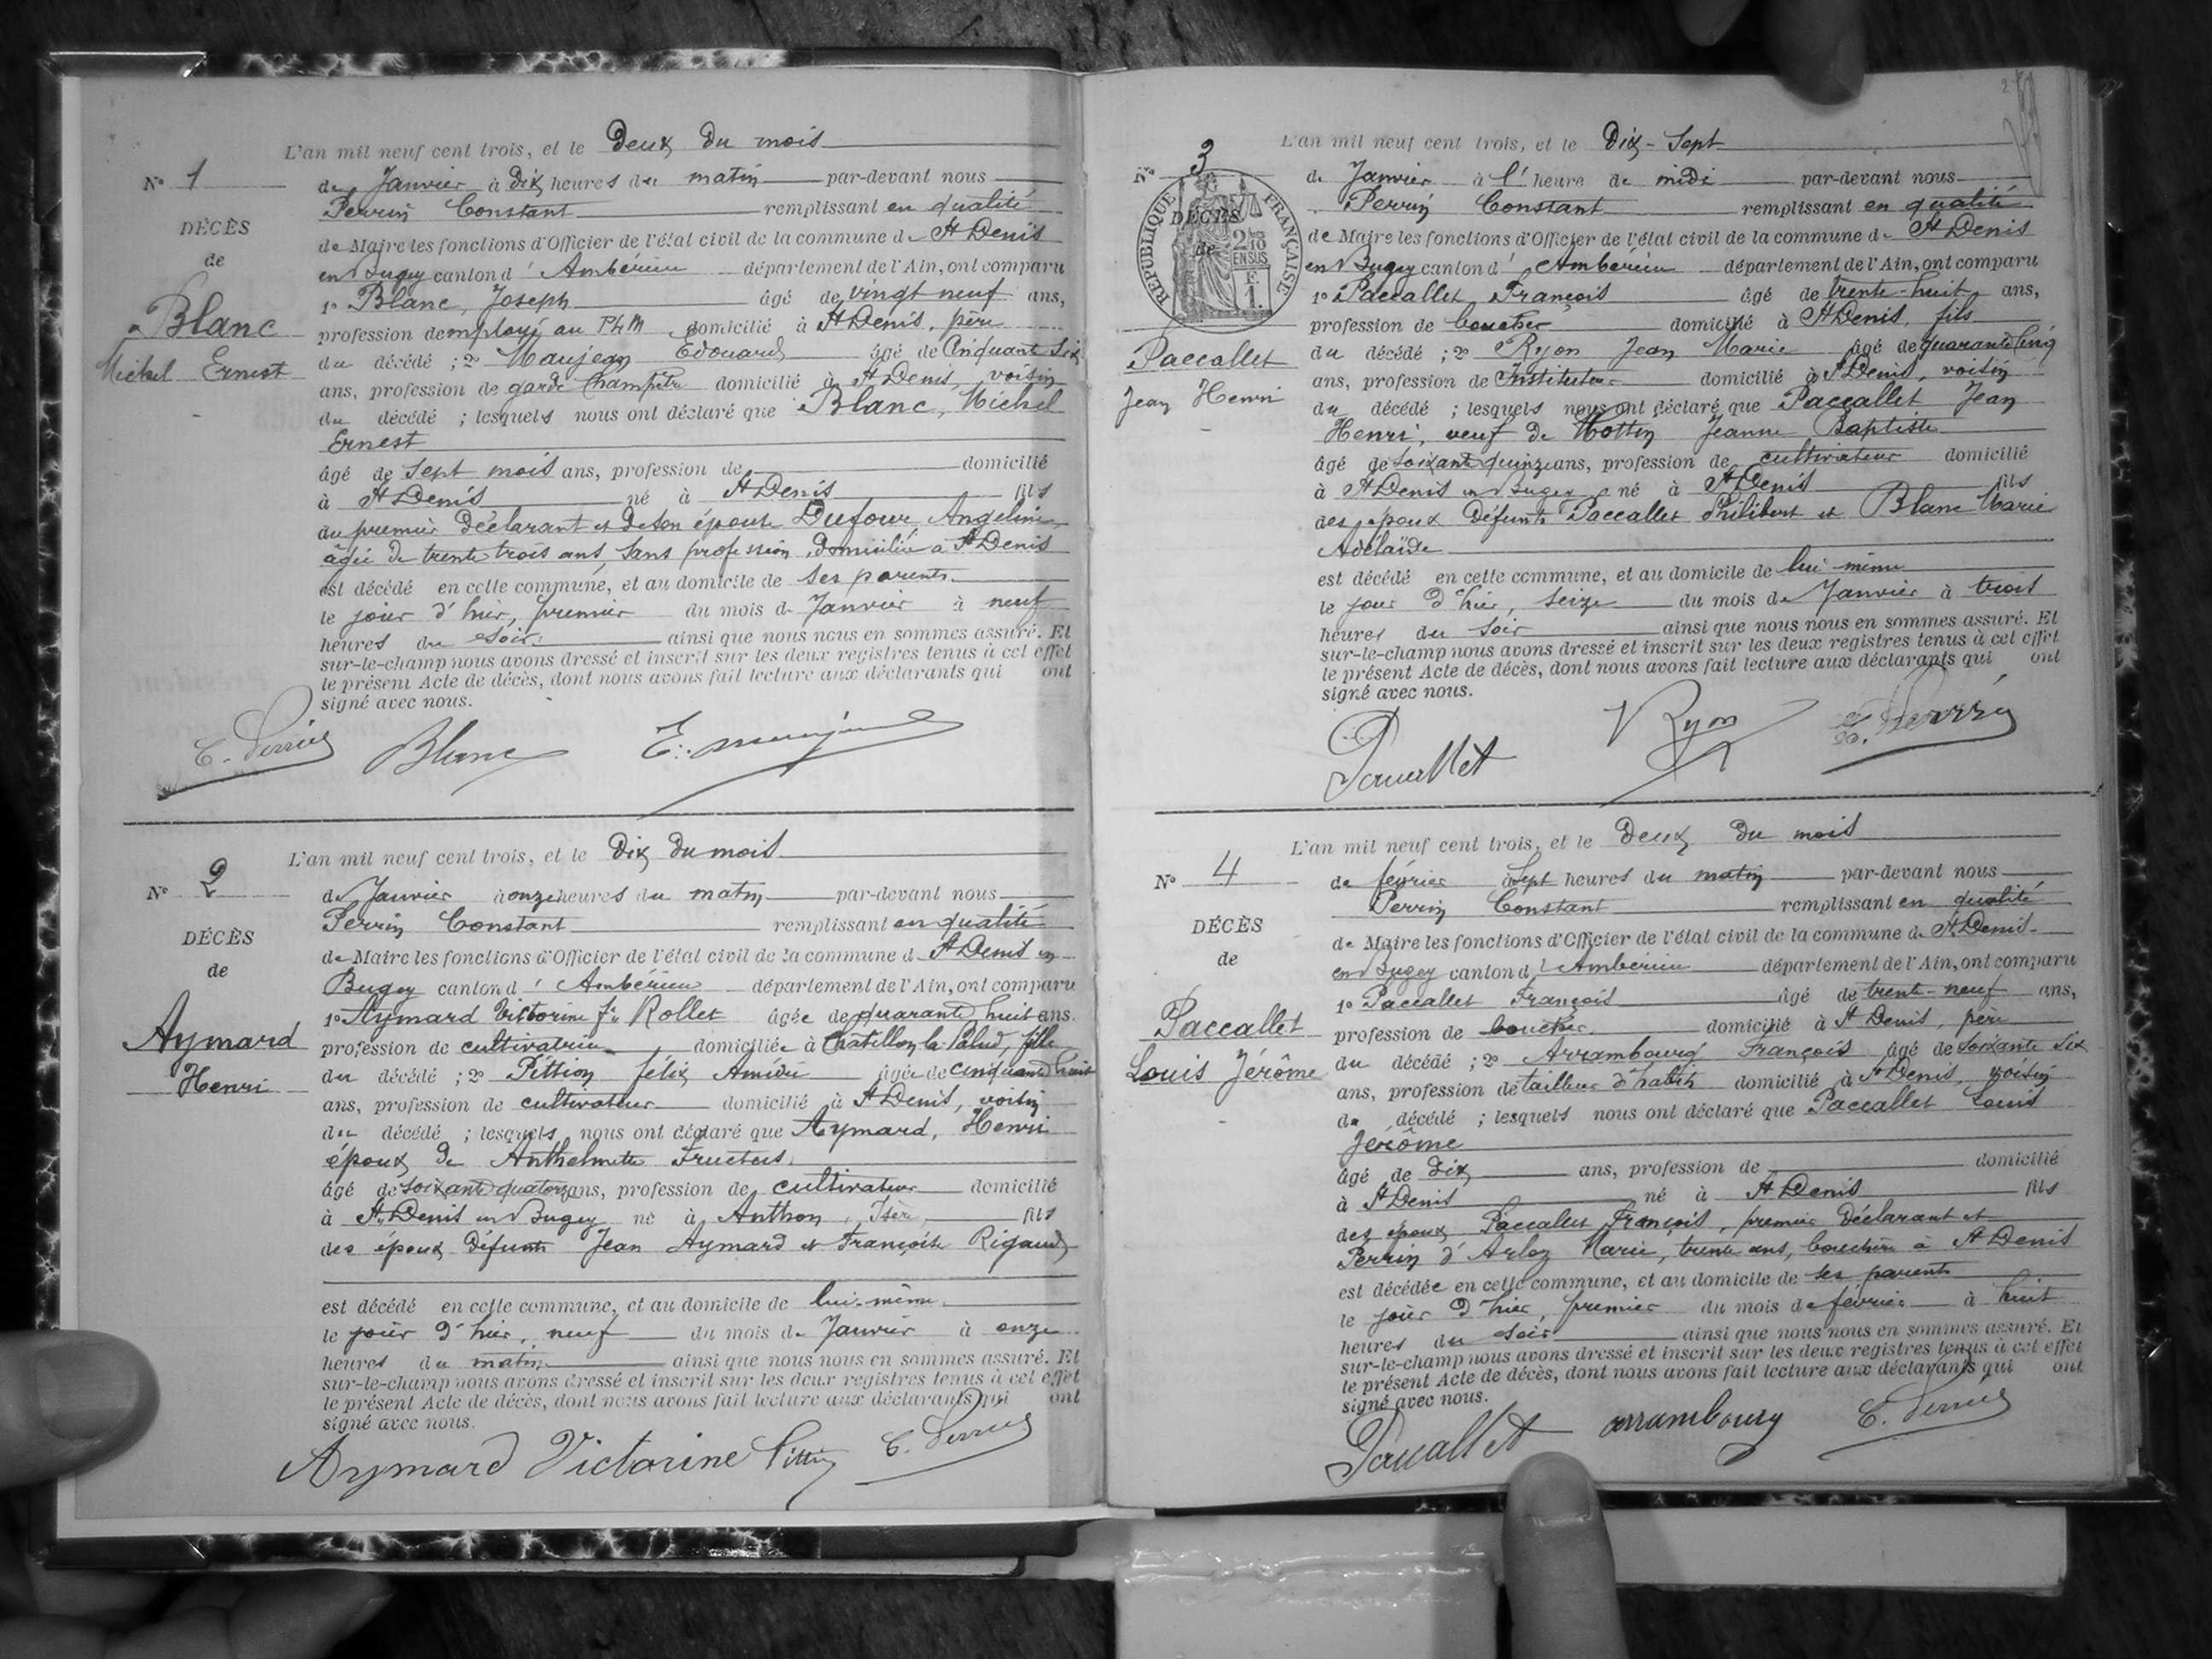 L'an mil neuf cent trois, et le Deux du mois
N° 1
de Janvier à Dix heures du matin par-devant nous
Perrin Constant remplissant en qualité
DÉCÈS
de Maire les fonctions d'Officier de l'état civil de la commune de St Denis
de
en Bugey canton d' Ambérieu département de l'Ain, ont comparu
1° Blanc, Joseph âgé de vingt neuf ans,
Blanc
profession d'employé au PLM domicilié à St Denis, père
Michel Ernest
du décédé ; 2° Maujean Edouard âgé de Cinquante Six
ans, profession de garde Champêtre domicilié à St Denis, voisin
du décédé ; lesquels nous ont déclaré que Blanc, Michel
Ernest
âgé de sept mois ans, profession de domicilié
à St Denis né à St Denis fils
du premier Déclarant et de son épouse Dufour, Angeline
âgée de trente trois ans, sans profession, domiciliée à St Denis
est décédé en cette commune, et au domicile de ses parents
le jour d'hier, premier du mois de Janvier à neuf
heures du soir ainsi que nous nous en sommes assuré. Et
sur-le-champ nous avons dressé et inscrit sur les deux registres tenus à cet effet
le présent Acte de décès, dont nous avons fait lecture aux déclarants qui ont
signé avec nous.
C. Perrin Blanc E. Maujean
L'an mil neuf cent trois, et le Dix du mois
N° 2
de Janvier à onze heures du matin par-devant nous
Perrin Constant remplissant en qualité
DÉCÈS
de Maire les fonctions d'Officier de l'état civil de la commune de St Denis en
de
Bugey canton d' Ambérieu département de l'Ain, ont comparu
1° Aymard Victorine fe Rollet âgée de quarante huit ans.
Aymard
profession de cultivatrice domiciliée à Chatillon la Palud, fille
Henri
du décédé ; 2° Pittion félix Amédée âgé de cinquante huit
ans, profession de cultivateur domicilié à St Denis, voisin
du décédé ; lesquels nous ont déclaré que Aymard, Henri
époux de Anthelmette Fructus
âgé de soixante quatorze ans, profession de cultivateur domicilié
à St Denis en Bugey né à Anthon, Isère, fils
des époux défunts Jean Aymard et Françoise Rigaud
est décédé en cette commune, et au domicile de lui-même
le jour d'hier, neuf du mois de Janvier à onze
heures du matin ainsi que nous nous en sommes assuré. Et
sur-le-champ nous avons dressé et inscrit sur les deux registres tenus à cet effet
le présent Acte de décès, dont nous avons fait lecture aux déclarants qui ont
signé avec nous.
Aymard Victorine Pittion C. Perrin
2
L'an mil neuf cent trois, et le Dix-Sept
N° 3
de Janvier à l'heure de midi par-devant nous
RÉPUBLIQUE FRANÇAISE
2/10 EN SUS
F. 1.
Perrin Constant remplissant en qualité
DÉCÈS
de Maire les fonctions d'Officier de l'état civil de la commune de St Denis
de
en Bugey canton d' Ambérieu département de l'Ain, ont comparu
1° Paccallet François âgé de trente-huit ans,
profession de boucher domicilié à St Denis, fils
Paccallet
du décédé ; 2° Ryon Jean Marie âgé de quarante cinq
Jean Henri
ans, profession de Instituteur domicilié à St Denis, voisin
du décédé ; lesquels nous ont déclaré que Paccallet Jean
Henri, veuf de Mottin Jeanne Baptiste
âgé de soixante quinze ans, profession de cultivateur domicilié
à St Denis en Bugey né à St Denis fils
des époux défunts Paccallet Philibert et Blanc Marie
Adélaïde
est décédé en cette commune, et au domicile de lui-même
le jour d'hier, seize du mois de Janvier à trois
heures du soir ainsi que nous nous en sommes assuré. Et
sur-le-champ nous avons dressé et inscrit sur les deux registres tenus à cet effet
le présent Acte de décès, dont nous avons fait lecture aux déclarants qui ont
signé avec nous.
Paccallet Ryon C. Perrin
L'an mil neuf cent trois, et le Deux du mois
N° 4
de février à sept heures du matin par-devant nous
Perrin Constant remplissant en qualité
DÉCÈS
de Maire les fonctions d'Officier de l'état civil de la commune de St Denis
de
en Bugey canton d' Ambérieu département de l'Ain, ont comparu
1° Paccallet François âgé de trente-neuf ans,
Paccallet
profession de boucher domicilié à St Denis, père
Louis Jérôme
du décédé ; 2° Arrambourg François âgé de soixante six
ans, profession de tailleur d'habits domicilié à St Denis, voisin
du décédé ; lesquels nous ont déclaré que Paccallet Louis
Jérôme
âgé de dix ans, profession de domicilié
à St Denis né à St Denis fils
des époux Paccallet François, premier Déclarant et
Perrin d'Arloz Marie, trente ans, bouchère à St Denis
est décédée en cette commune, et au domicile de ses parents
le jour d'hier, premier du mois de février à huit
heures du soir ainsi que nous nous en sommes assuré. Et
sur-le-champ nous avons dressé et inscrit sur les deux registres tenus à cet effet
le présent Acte de décès, dont nous avons fait lecture aux déclarants qui ont
signé avec nous.
Paccallet arrambourg C. Perrin